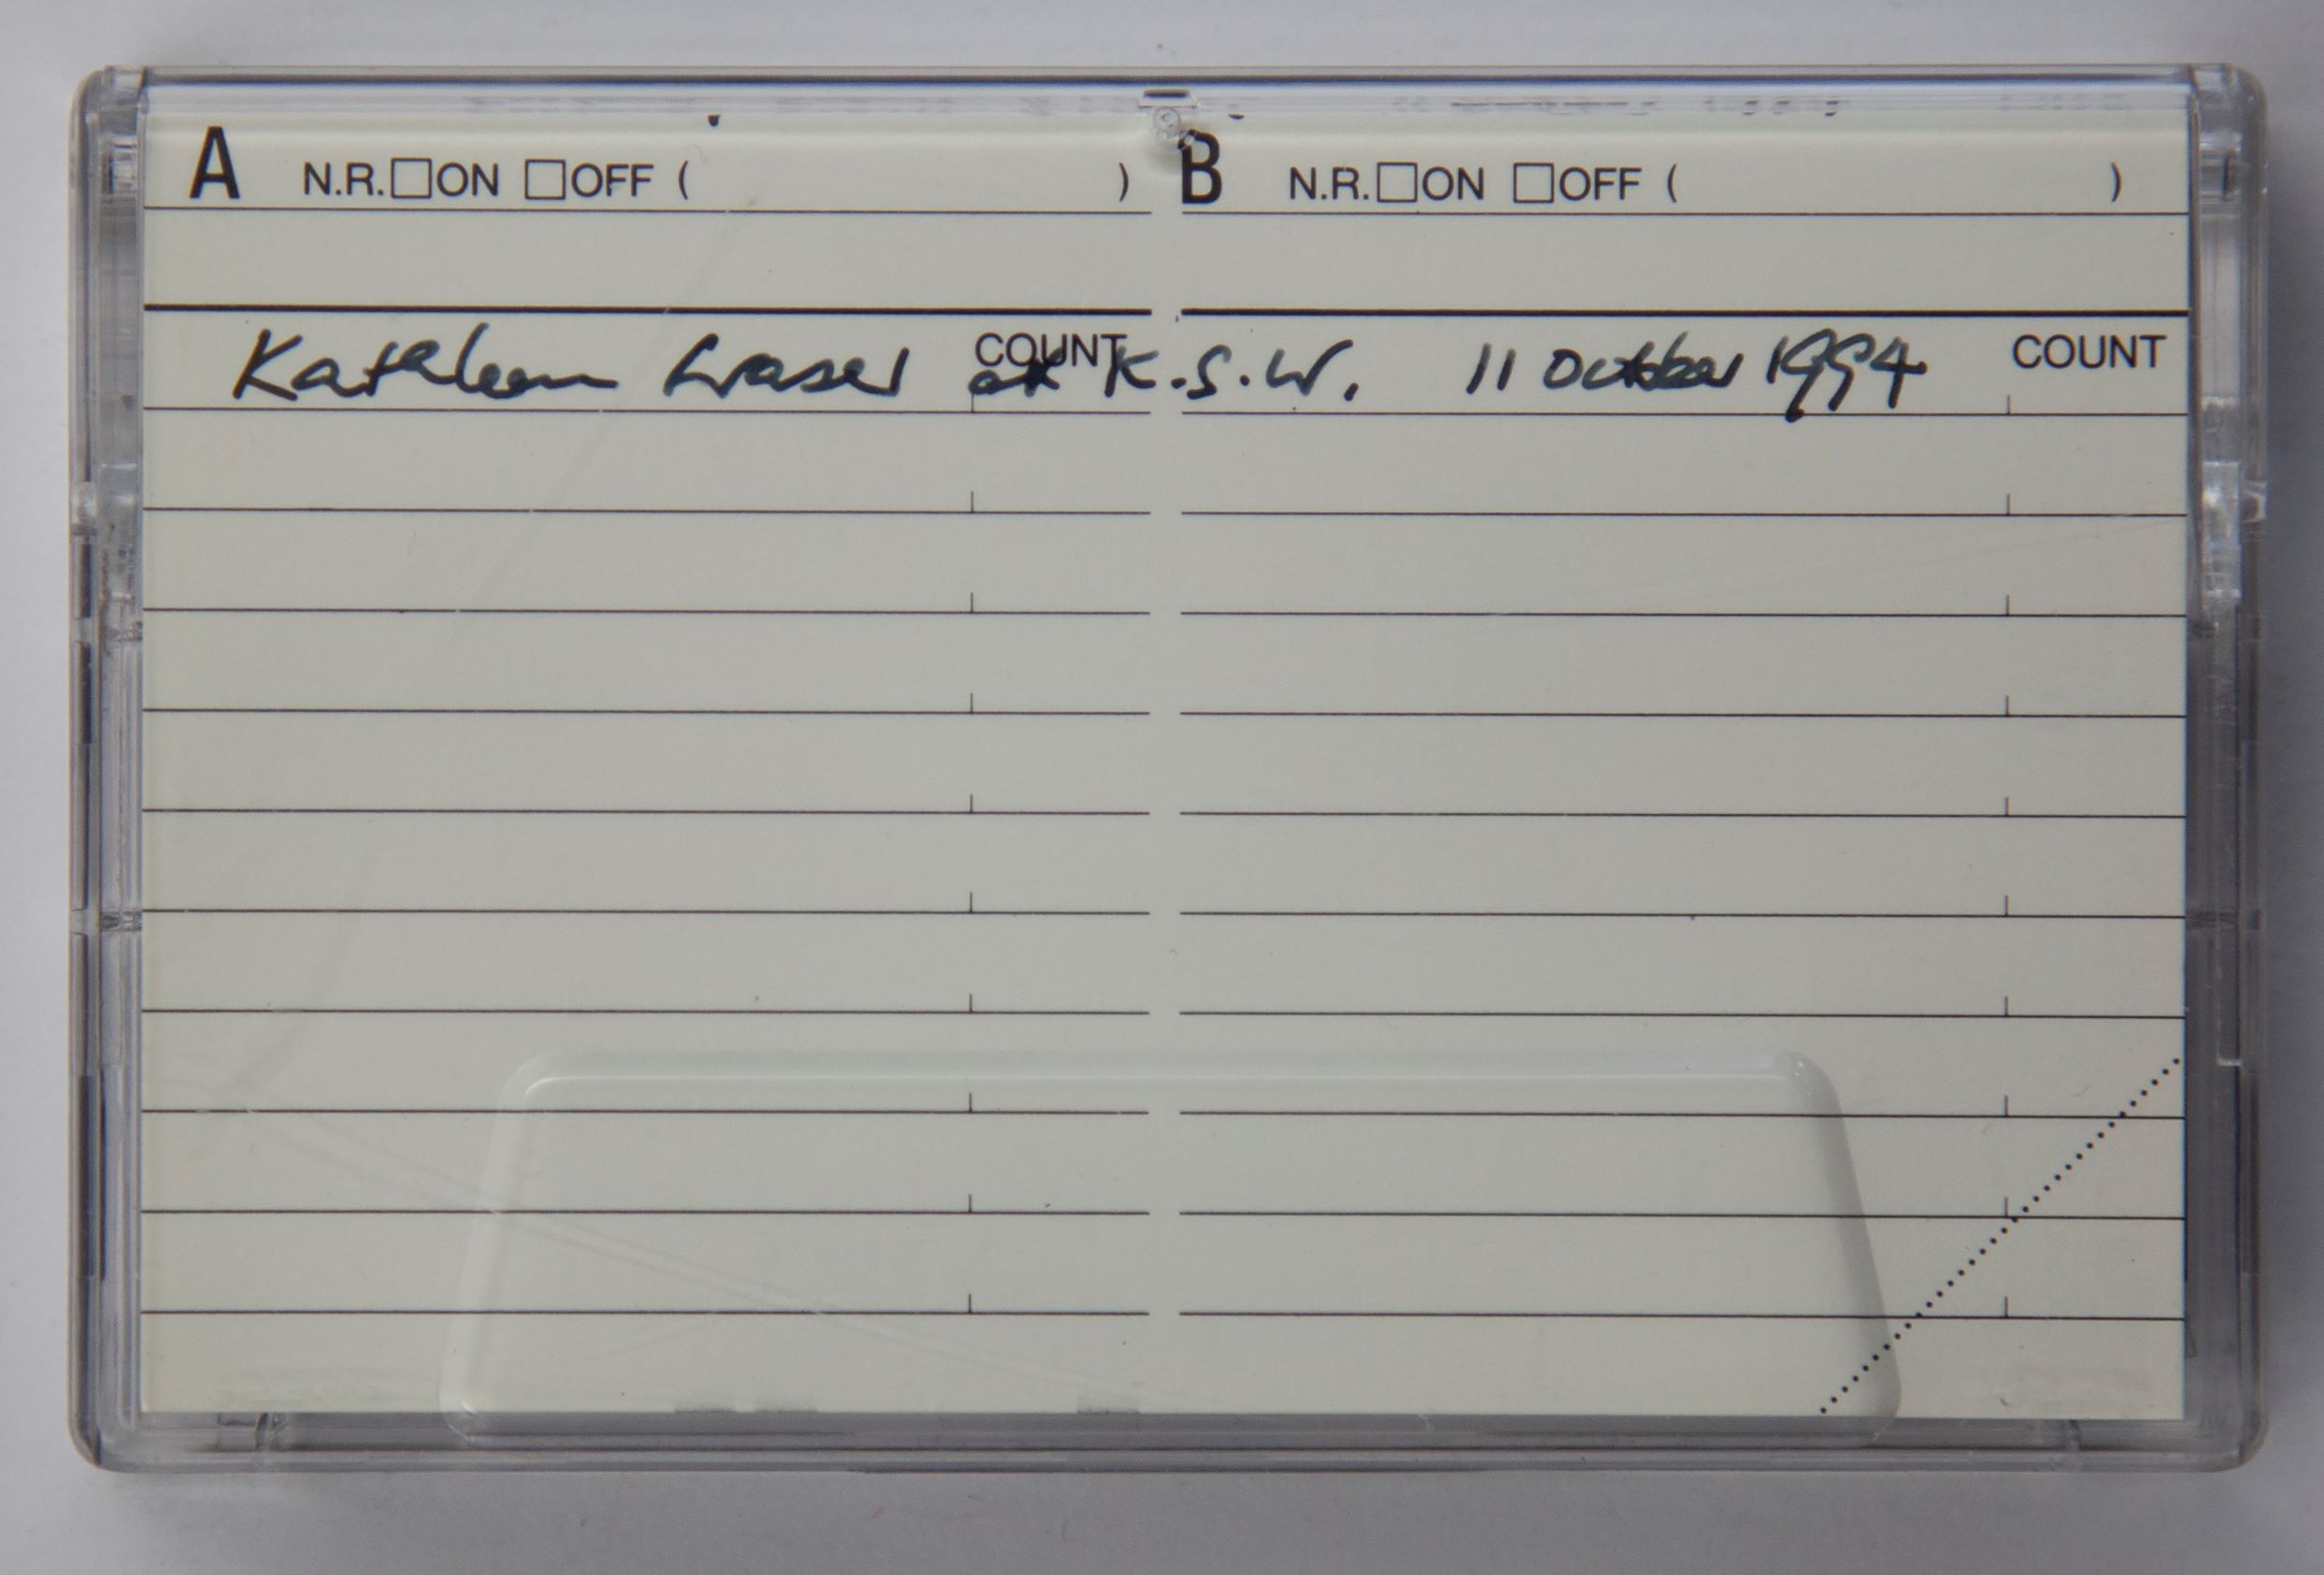 A N.R. □ON □OFF ( ) B N.R. □ON □OFF ( )
COUNT COUNT
Kathleen Fraser at K.S.W. 11 October 1994